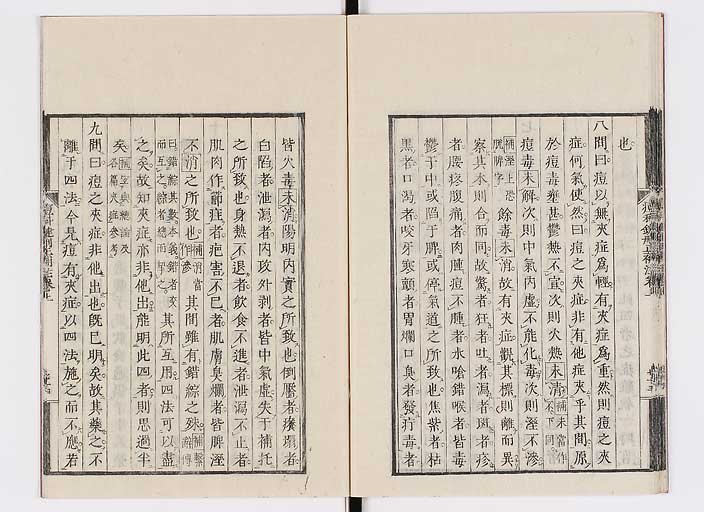 也
八問曰痘以無夾症爲輕有夾症爲重然則痘之夾
症何氣使然曰痘之夾症非有他症夾乎其間原
於痘毒壅甚鬱熱不宣次則火熱未清補未當作不下同
痘毒未解次則中氣内虛不能化毒次則溼不滲
補溼上恐脱脾字餘毒未消故有夾症觀其標則離而異
察其本則合而同故驚者狂者吐者瀉者斑者疹
者腰疼腹痛者肉腫痘不腫者水嗆錯喉者皆毒
鬱于中或陷于脾或停氣道之所致也焦紫者枯
黒者口渇者咬牙寒顫者胃爛口臭者發疔毒者
皆火毒未清陽明内實之所致也倒靨者癢塌者
白陷者泄瀉者内攻外剥者皆中氣虛失于補托
之所致也身熱不退者飲食不進者泄瀉不止者
肌肉作節症者疤害不已者肌膚臭爛者皆脾溼
不消之所致也補消當作滲其間雖有錯綜之殊補繫辭傳
曰錯綜其數本義錯者交而互之綜者總而挈之其所互用四法可以盡
之矣故知夾症亦非他出能明此四者則思過半
矣補宜與總論及各篇夾症參考
九問曰痘之夾症非他出也既已明矣故其藥之不
離于四法今是痘有夾症以四法施之而不應若